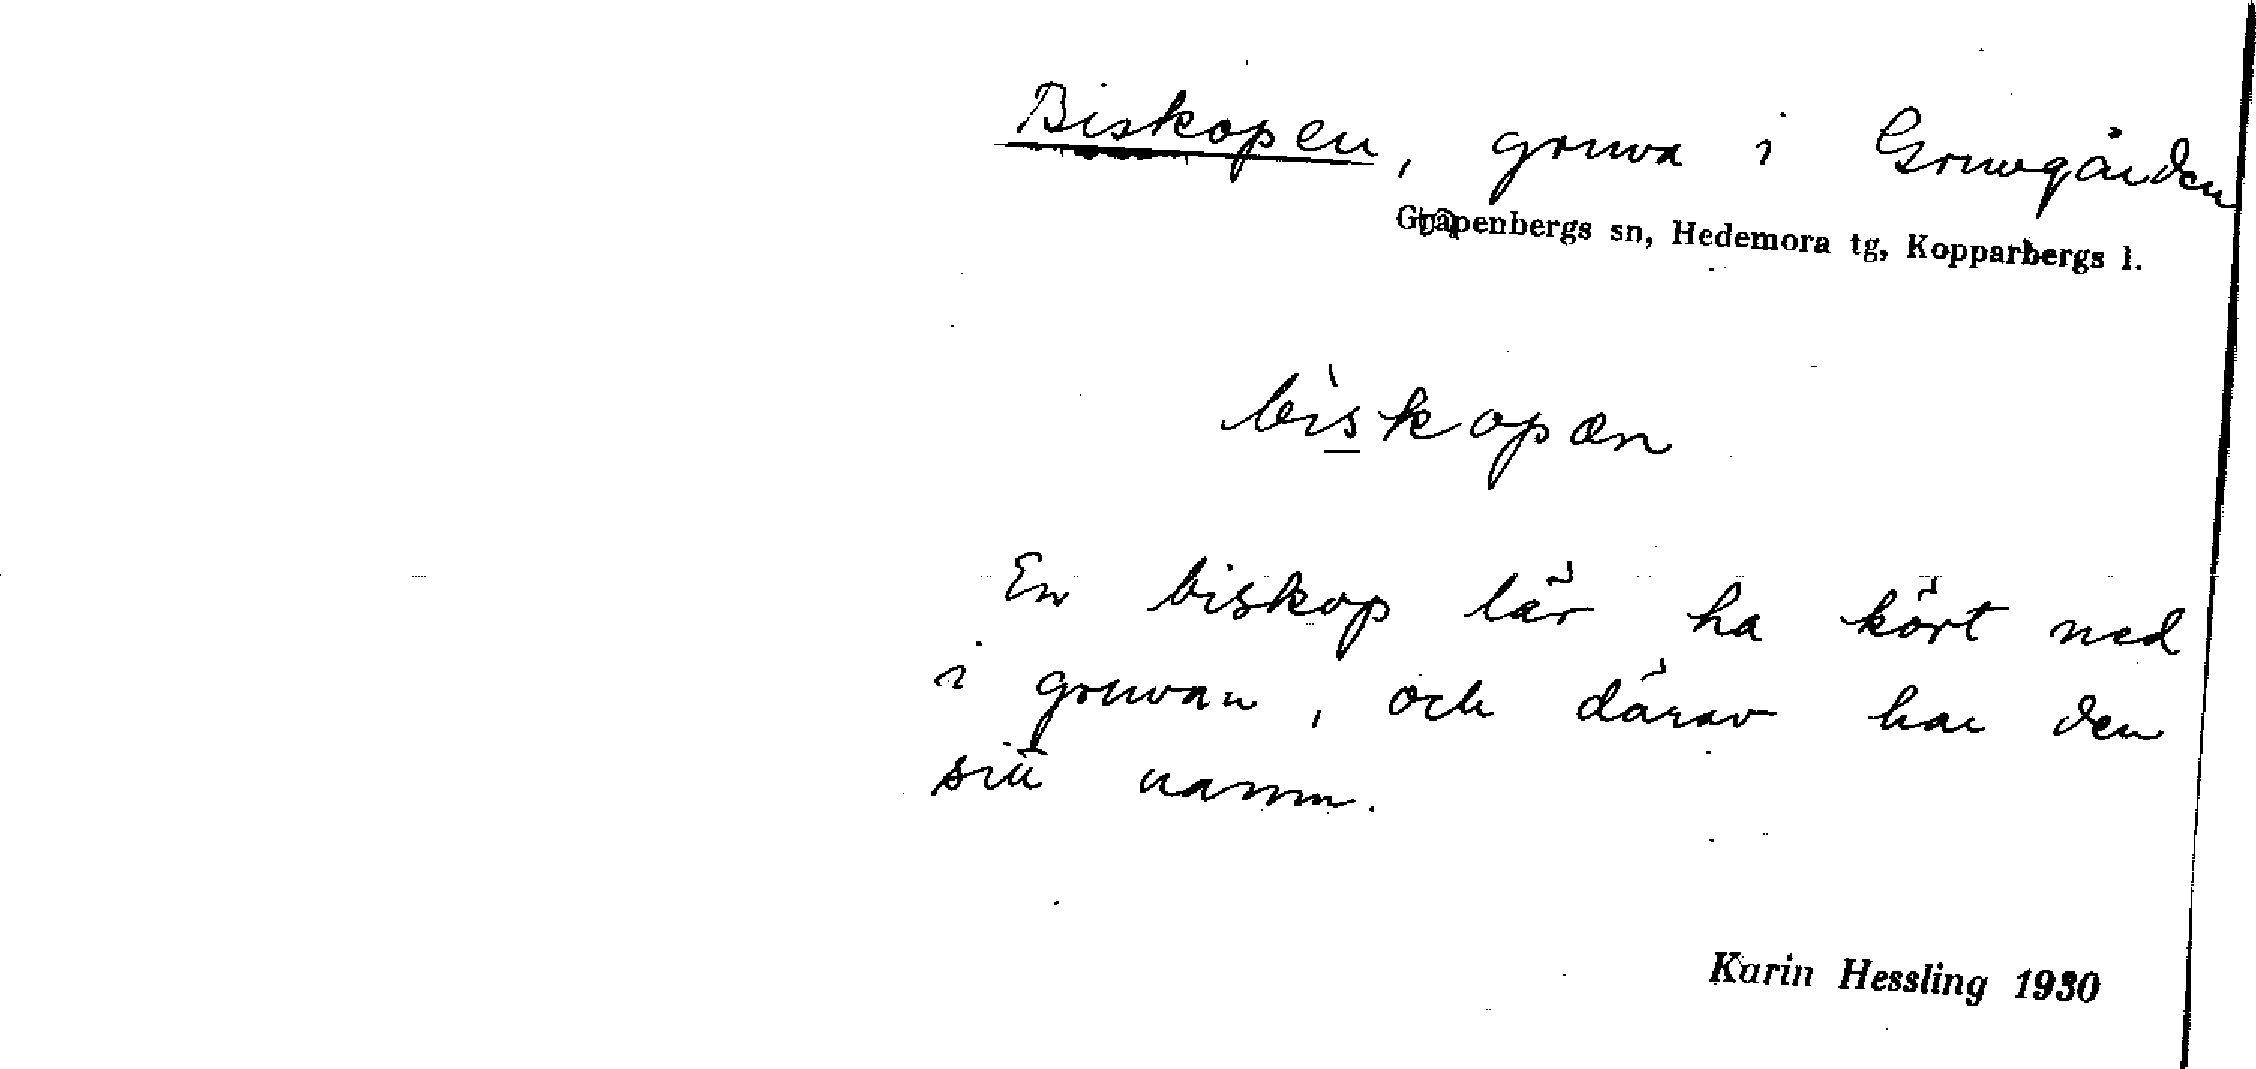 Biskopen, gruva i Gruvgården
Garpenbergs sn, Hedemora tg, Kopparbergs l.
bìskopæn
En biskop lär ha kört ned
i gruvan, och därav har den
sitt namn.
Karin Hessling 1930